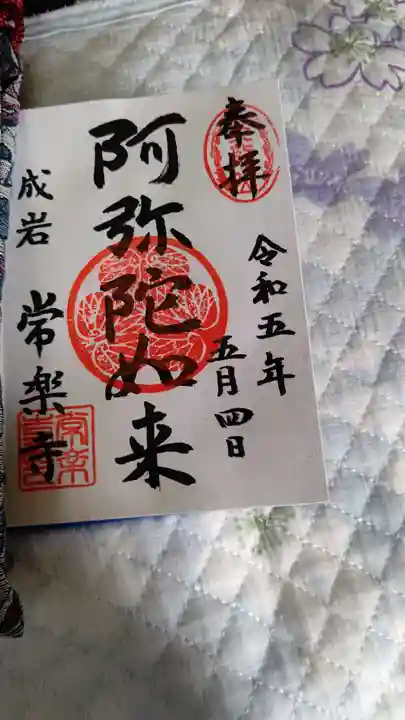 奉拝
令和五年
五月四日
阿弥陀如来
成岩
常楽寺